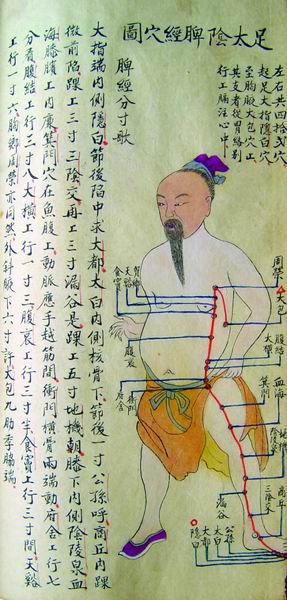 足太陰脾經穴圖
左右共四拾弍穴
起足大指隱白穴
至胸腋大包穴止
其支者從胃絡別
行上膈注心中
脾經分寸歌
大指端內側隱白節後陷中求大都太白內側核骨下節後一寸公孫呼商丘內踝
微前陷踝上三寸三陰交再上三寸漏谷是踝上五寸地機朝膝下內側陰陵泉血
海膝臏上內廉箕門穴在魚腹上動脈應手越筋間衝門橫骨兩端動府舍上行七
分看腹結上行三寸八大橫上行一寸三腹哀上行三寸半食竇上行三寸間天谿
上行一寸六胸鄉周榮亦同然外斜腋下六寸許大包九肋季脇端
周榮
大包
胸鄉
天谿
食竇
腹結
大橫
腹哀
衝門
府舍
血海
箕門
陰陵泉
地機
商丘
三陰交
漏谷
公孫
太白
大都
隱白